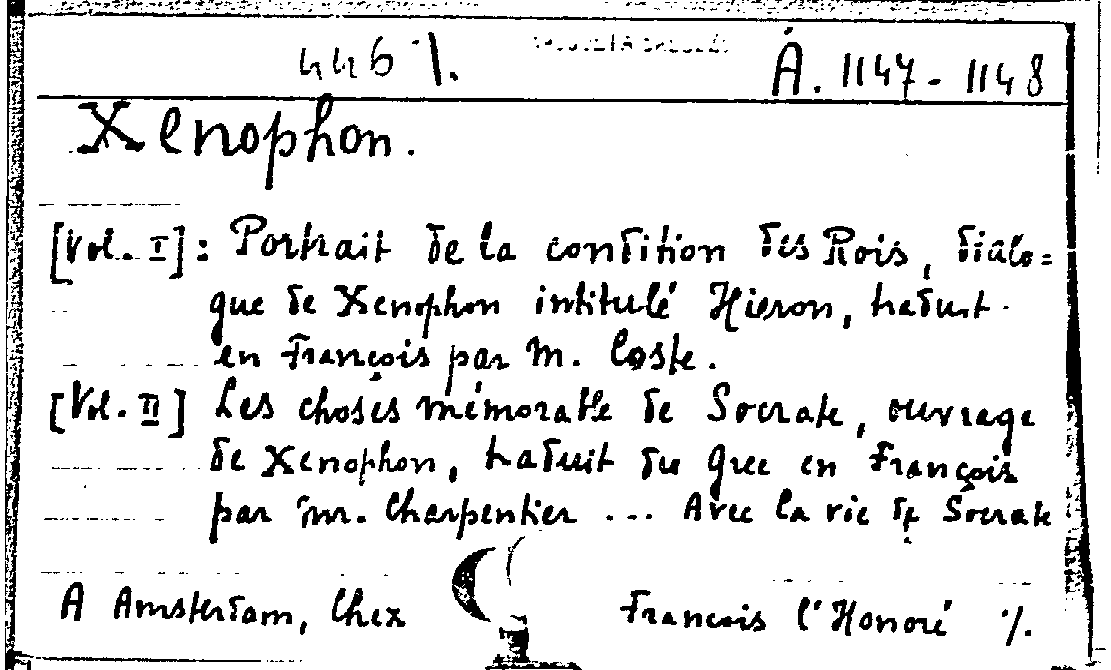 446 /. A. 1147 - 1148
Xenophon.
[Vol. I]: Portrait de la condition des Rois, dialo=
gue de Xenophon intitulé Hieron, traduit
en François par M. Coste.
[Vol. II] Les choses mémorable de Socrate, ouvrage
de Xenophon, traduit du Grec en François
par mr. Charpentier ... Avec la vie de Socrate
A Amsterdam, Chez François l'Honoré ./.